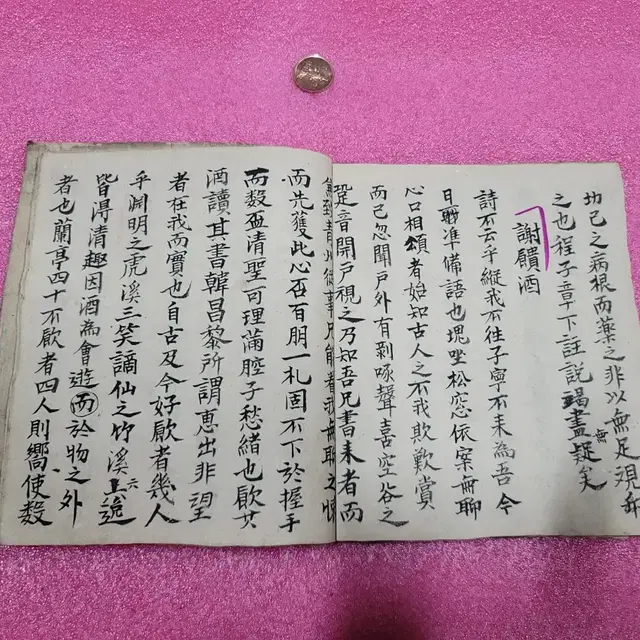 之病根而藥之非以無足
之也程子章下註說竭盡無疑矣
謝饋酒
詩不云乎縱我不往子寧不来為吾今
日准備語也塊坐松窓依案無聊
心口相頌者始知古人之不我欺歎賞
而已忽聞戶外有剝啄聲喜空谷之
跫音開戶視之乃知吾兄書来者而
到青州從事兄能者我無聊之懷
而先獲此心否百朋一札固不下於握手
而數盃清聖一可理滿腔子愁緒也飮其
酒讀其書韓昌黎所謂恵出非望
者在我而實也自古及今好飮者幾人
乎淵明之虎溪三笑謫仙之竹溪六逸
皆得清趣因酒為會遊而於物之外
者也蘭亭四十不飮者四人則嚮使數